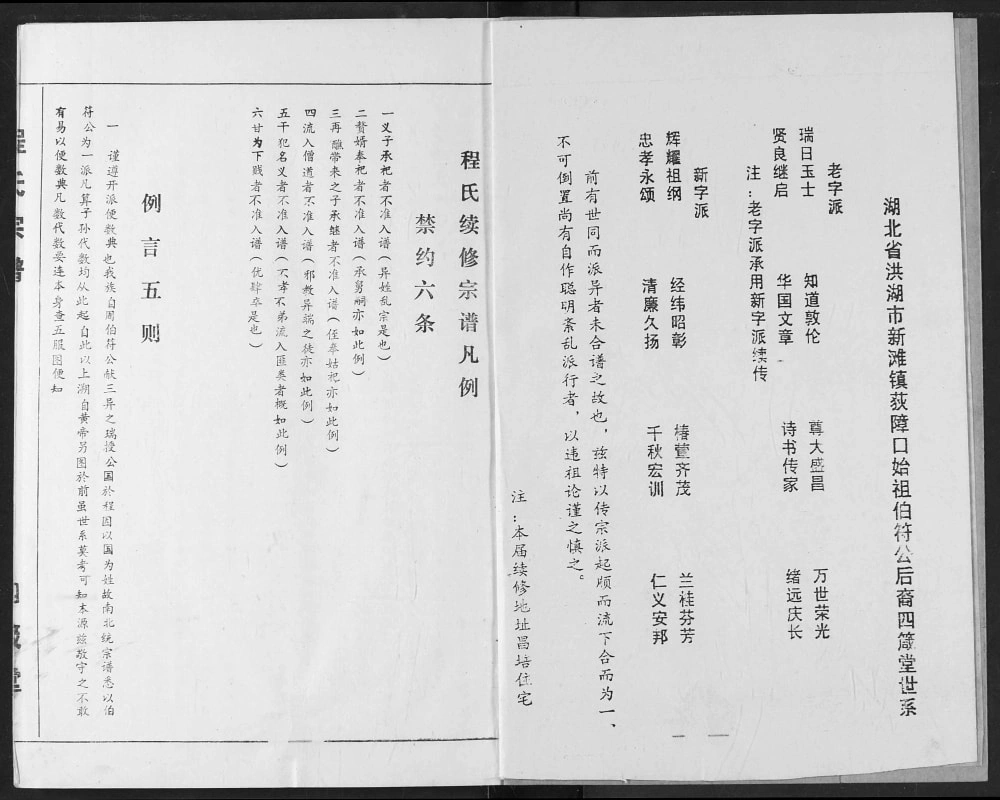 湖北省洪湖市新滩镇荻障口始祖伯符公后裔四箴堂世系
老字派
瑞日玉士 知道敦伦 尊大盛昌 万世荣光
贤良继启 华国文章 诗书传家 绪远庆长
注：老字派承用新字派续传
新字派
辉耀祖纲 经纬昭彰 椿萱齐茂 兰桂芬芳
忠孝永颂 清廉久扬 千秋宏训 仁义安邦
前有世同而派异者未合谱之故也，兹特以传宗派起顺而流下合而为一、
不可倒置尚有自作聪明紊乱派行者，以违祖论谨之慎之。
注：本届续修地址昌培住宅
程氏续修宗谱凡例
禁约六条
一义子承祀者不准入谱（异姓乱宗是也）
二赘婿奉祀者不准入谱（承舅嗣亦如此例）
三再醮带来之子承继者不准入谱（侄奉姑祀亦如此例）
四流入僧道者不准入谱（邪教异端之徒亦如此例）
五干犯名义者不准入谱（不孝不弟流入匪类者概如此例）
六甘为下贱者不准入谱（优肆卒是也）
例言五则
一 谨遵开派便数典也我族自周伯符公献三异之瑞授公国於程因以国为姓故南北统宗谱悉以伯
符公为一派凡算子孙代数均从此起自此以上溯自黄帝另图於前虽世系莫考可知本源兹敬守之不敢
有易以便数典凡数代数要连本身查五服图便知
程氏宗谱
四箴堂